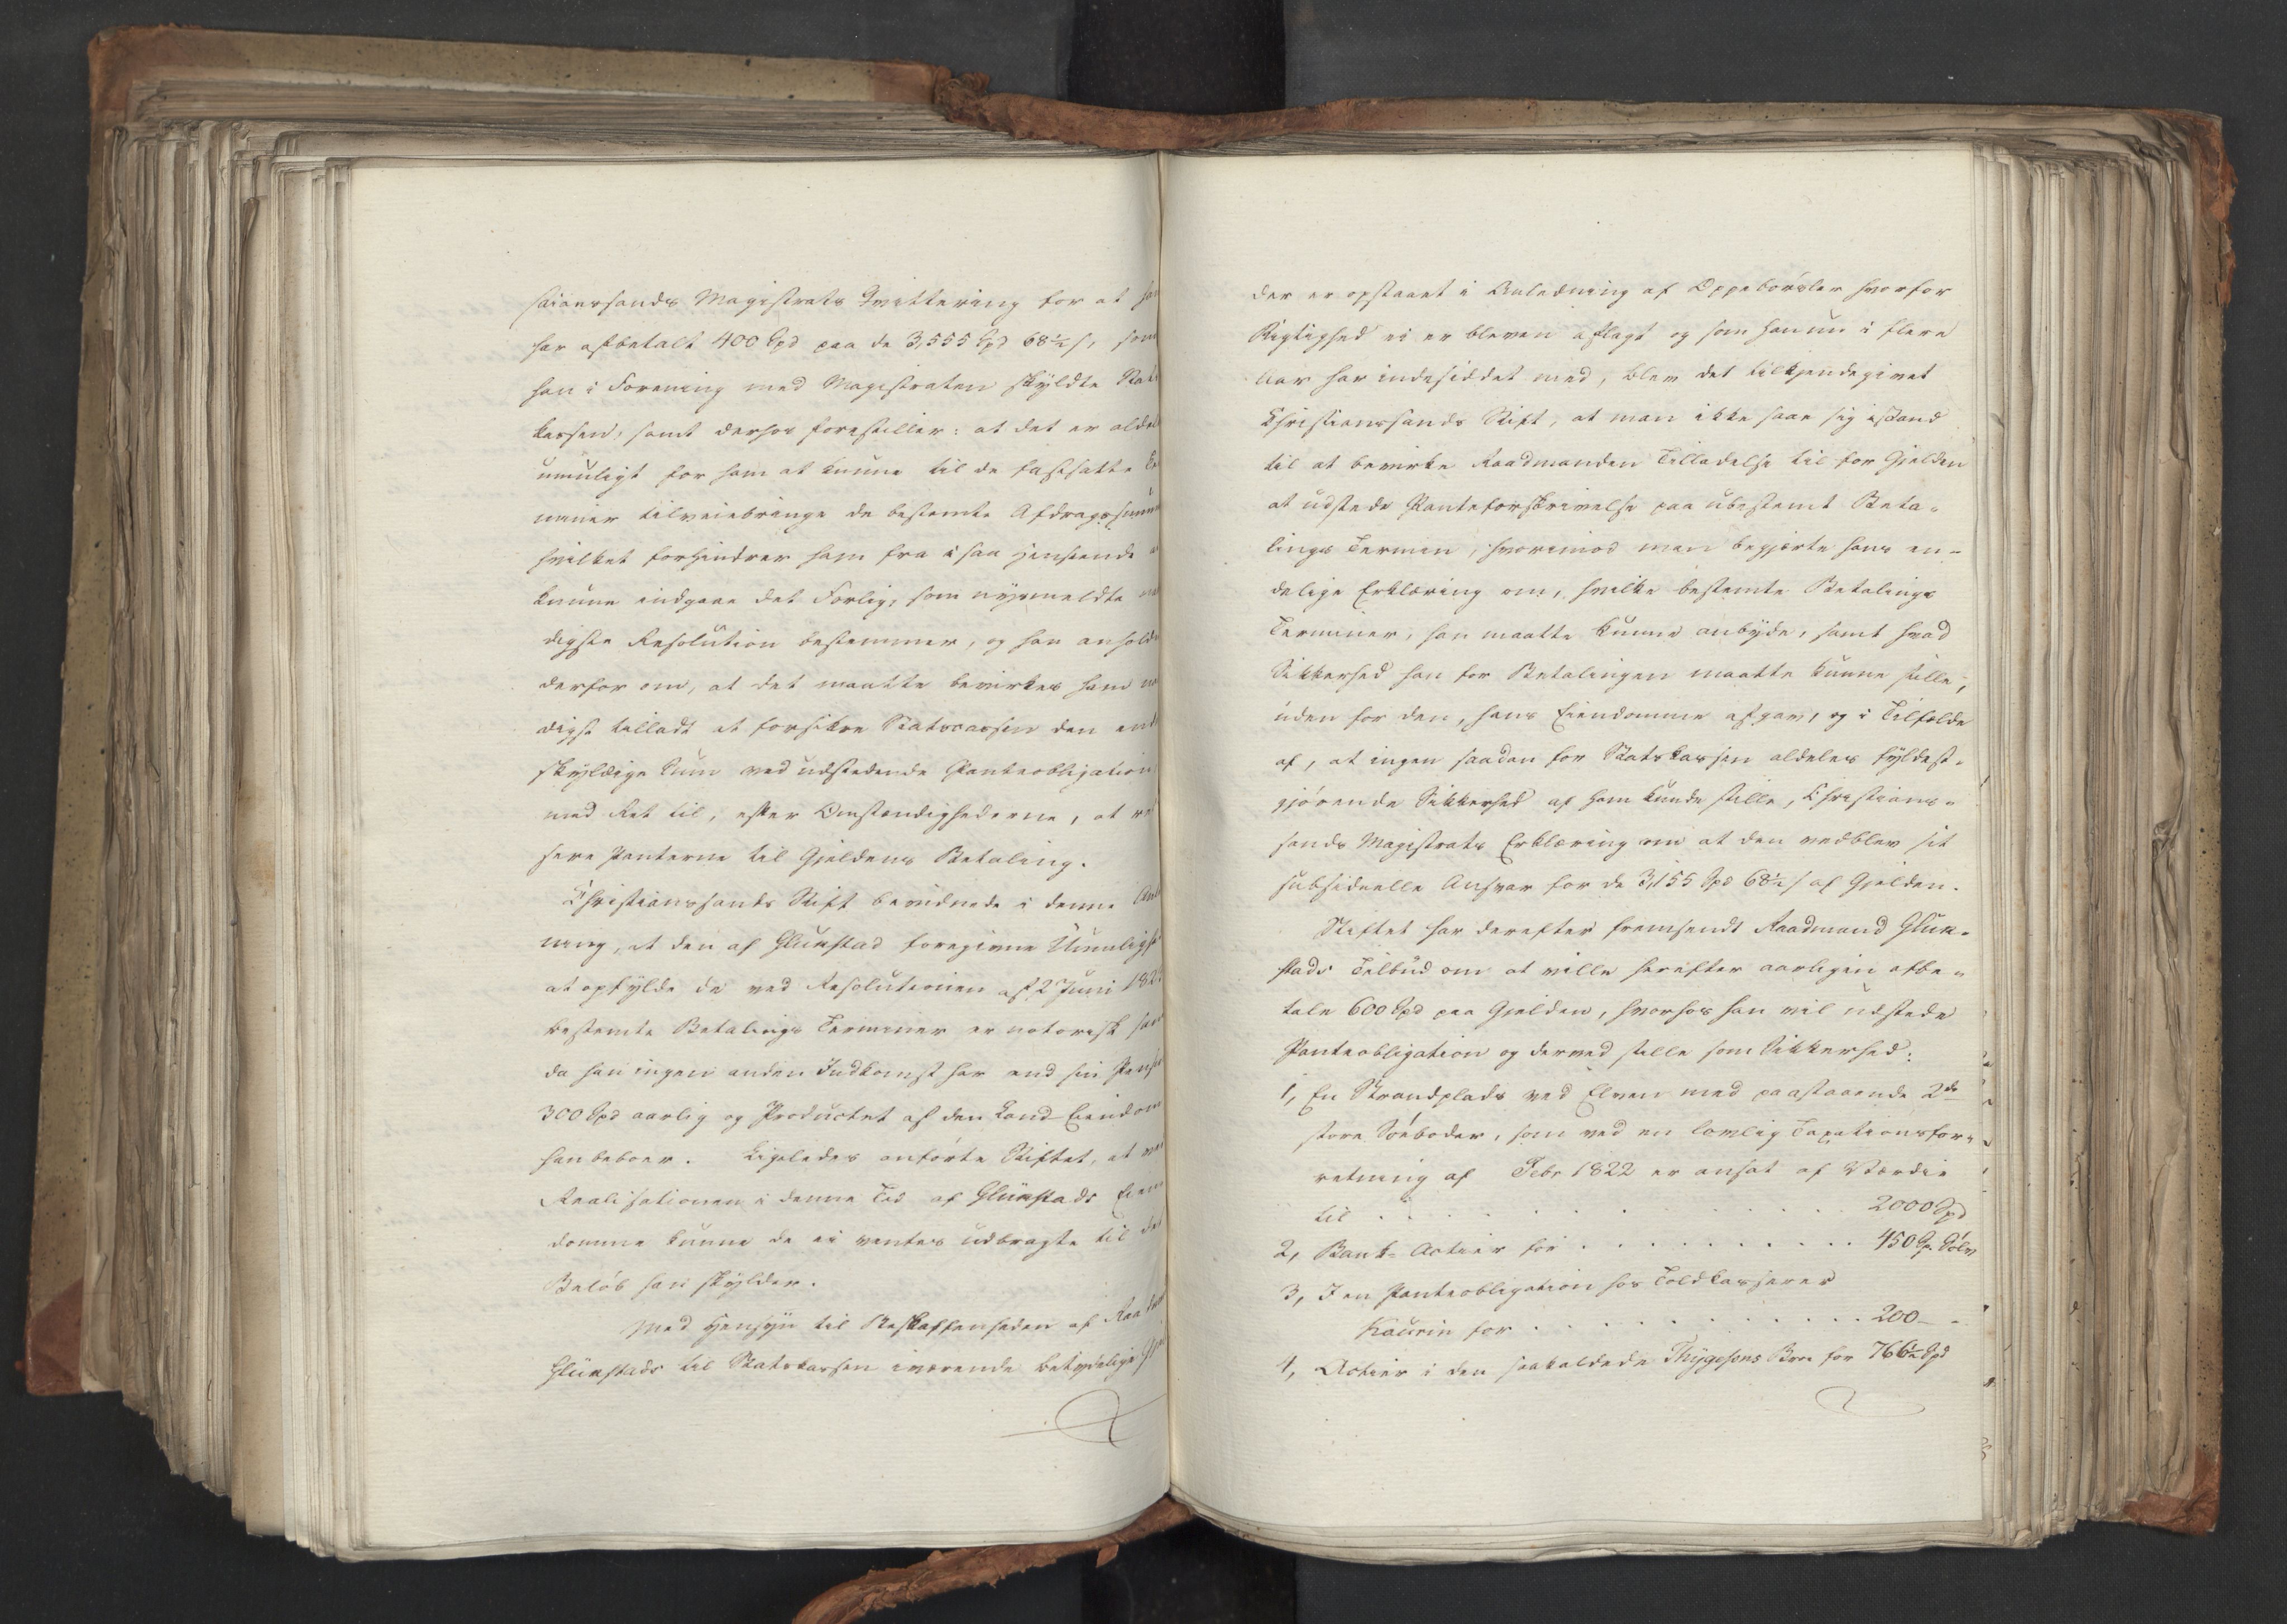 stianssands Magistrats Qvittering for at han
har afbetalt 400 Spd paa de 3,555 Spd 68½ s, som
han i Forening med Magistraten skyldte Stats
kassen, samt derhos forestiller: at det er aldeles
umuligt for ham at kunne til de fastsatte Ter
miner tilveiebringe de bestemte Afdragssummer
hvilket forhindrer ham fra i saa Henseende at
kunne indgaae det Forlig, som nysmeldte naa
digste Resolution bestemmer, og han anholder
derfor om, at det maatte bevirkes ham naa
digst tilladt at forsikre Statscassen den end
skyldige Sum ved udstedende Panteobligation
med Ret til, efter Omstændighederne, at reali
sere Panterne til Gjeldens Betaling.
Christianssands Stift bevidnede i denne Anled
ning, at den af Glückstad foregivne Umulighed
at opfylde de ved Resolutionen af 2 Juni 182
bestemte Betalings Terminer er notorisk sand
da han ingen anden Indkomst har end sin Pension
300 Spd aarlig og Productet af den Land-Eiendom
han beboer. Ligeledes anførte Stiftet, at ved
Realisationen i denne Tid af Glückstads Eien
domme kunne de ei ventes udbragte til det
Beløb han skylder.
Med Hensyn til Beskaffenheden af Raadmand
Glückstads til Statskassen værende betydelige Gjeld
der er opstaaet i Anledning af Oppebørsler hvorfor
Rigtighed ei er bleven aflagt og som han nu i flere
Aar har indesiddet med, blev det tilkjendegivet
Christianssands Stift, at man ikke saae sig istand
til at bevirke Raadmanden Tilladelse til for Gjelden
at udstede Panteforskrivelse paa ubestemt Beta-
lings Termin, hvorimod man begjerte hans en-
delige Erklæring om, hvilke bestemte Betalings
Terminer, han maatte kunne anbyde, samt hvad
Sikkerhed han for Betalingen maatte kunne stille,
uden for den, hans Eiendomme afgav, og i Tilfælde
af, at ingen saadan for Statskassen aldeles fyldest-
gjørende Sikkerhed af ham kunde stilles, Christians-
sands Magistrats Erklæring om at den vedblev sit
subsidiælle Ansvar for de 3,155 Spd 68½ s af Gjelden.
Stiftet har derefter fremsendt Raadmand Glük-
stads Tilbud om at ville herefter aarligen afbe-
tale 600 Spd paa Gjelden, hvorhos han vil udstede
Panteobligation og derved stille som Sikkerhed:
1, En Strandplads ved Elven med paastaaende 2de
store Søeboder, som ved en lovlig Taxationsfor-
retning af Febr 1822 er ansat af Værdie
til . . . . . . . . . . 2000 Spd
2, Bank-Actier for . . . . . . . . . . 450 Sp. Sølv
3, I en Panteobligation hos Toldkasserer
Kaurin for . . . . . . . . . . 200 - -
4, Actier i den saakaldede Thygesons Broe for 766½ Spd